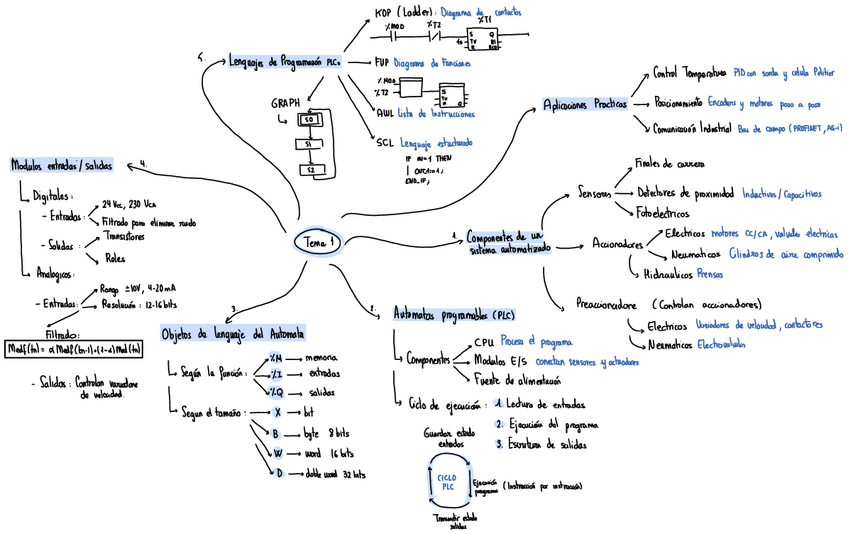 Tema 1
1. Componentes de un
sistema automatizado
Sensores
Finales de carrera
Detectores de proximidad Inductivos / Capacitivos
Fotoelectricos
Accionadores
Electricos motores CC/CA, valvulas electricas
Neumaticos Cilindros de aire comprimido
Hidraulicos Prensas
Preaccionadore (Controlan accionadores)
Electricos Variadores de velocidad, contactores
Neumaticos Electrovalvulas
2.
Automatas programables (PLC)
Componentes
CPU Procesa el programa
Modulos E/S conectan sensores y actuadores
Fuente de alimentación
Ciclo de ejecución :
1. Lectura de entradas
2. Ejecución del programa
3. Escritura de salidas
Guardar estado
entradas
CICLO
PLC
Ejecución
programa (Instrucción por instrucción)
Transmitir estado
salidas
3
Objetos de lenguaje del Automata
Según la función :
%M memoria
%I entradas
%Q salidas
Segun el tamaño :
X bit
B byte 8 bits
W word 16 bits
D doble word 32 bits
4.
Modulos entradas / salidas
Digitales :
- Entradas :
24 Vcc, 230 Vca
Filtrado para eliminar ruido
- Salidas :
Transistores
Reles
Analogicos :
- Entradas :
Rango ±10V, 4-20 mA
Resolución : 12-16 bits
Filtrado :
- Salidas : Controlan variadores
de velocidad.
5.
Lenguajes de Programación PLCs
KOP (Ladder) : Diagrama de contactos
%M0.0
%T2
%T1
FUP Diagrama de Funciones
%M0.0
%T2
AWL Lista de Instrucciones
SCL Lenguaje estructurado
IF IN=1 THEN
OUT:=1;
END_IF;
GRAPH
S0
S1
S2
Aplicaciones Practicas
Control Temperatura PID con sonda y celula Peltier
Posicionamiento Encoders y motores paso a paso
Comunicación Industrial Bus de campo (PROFINET, AS-i)